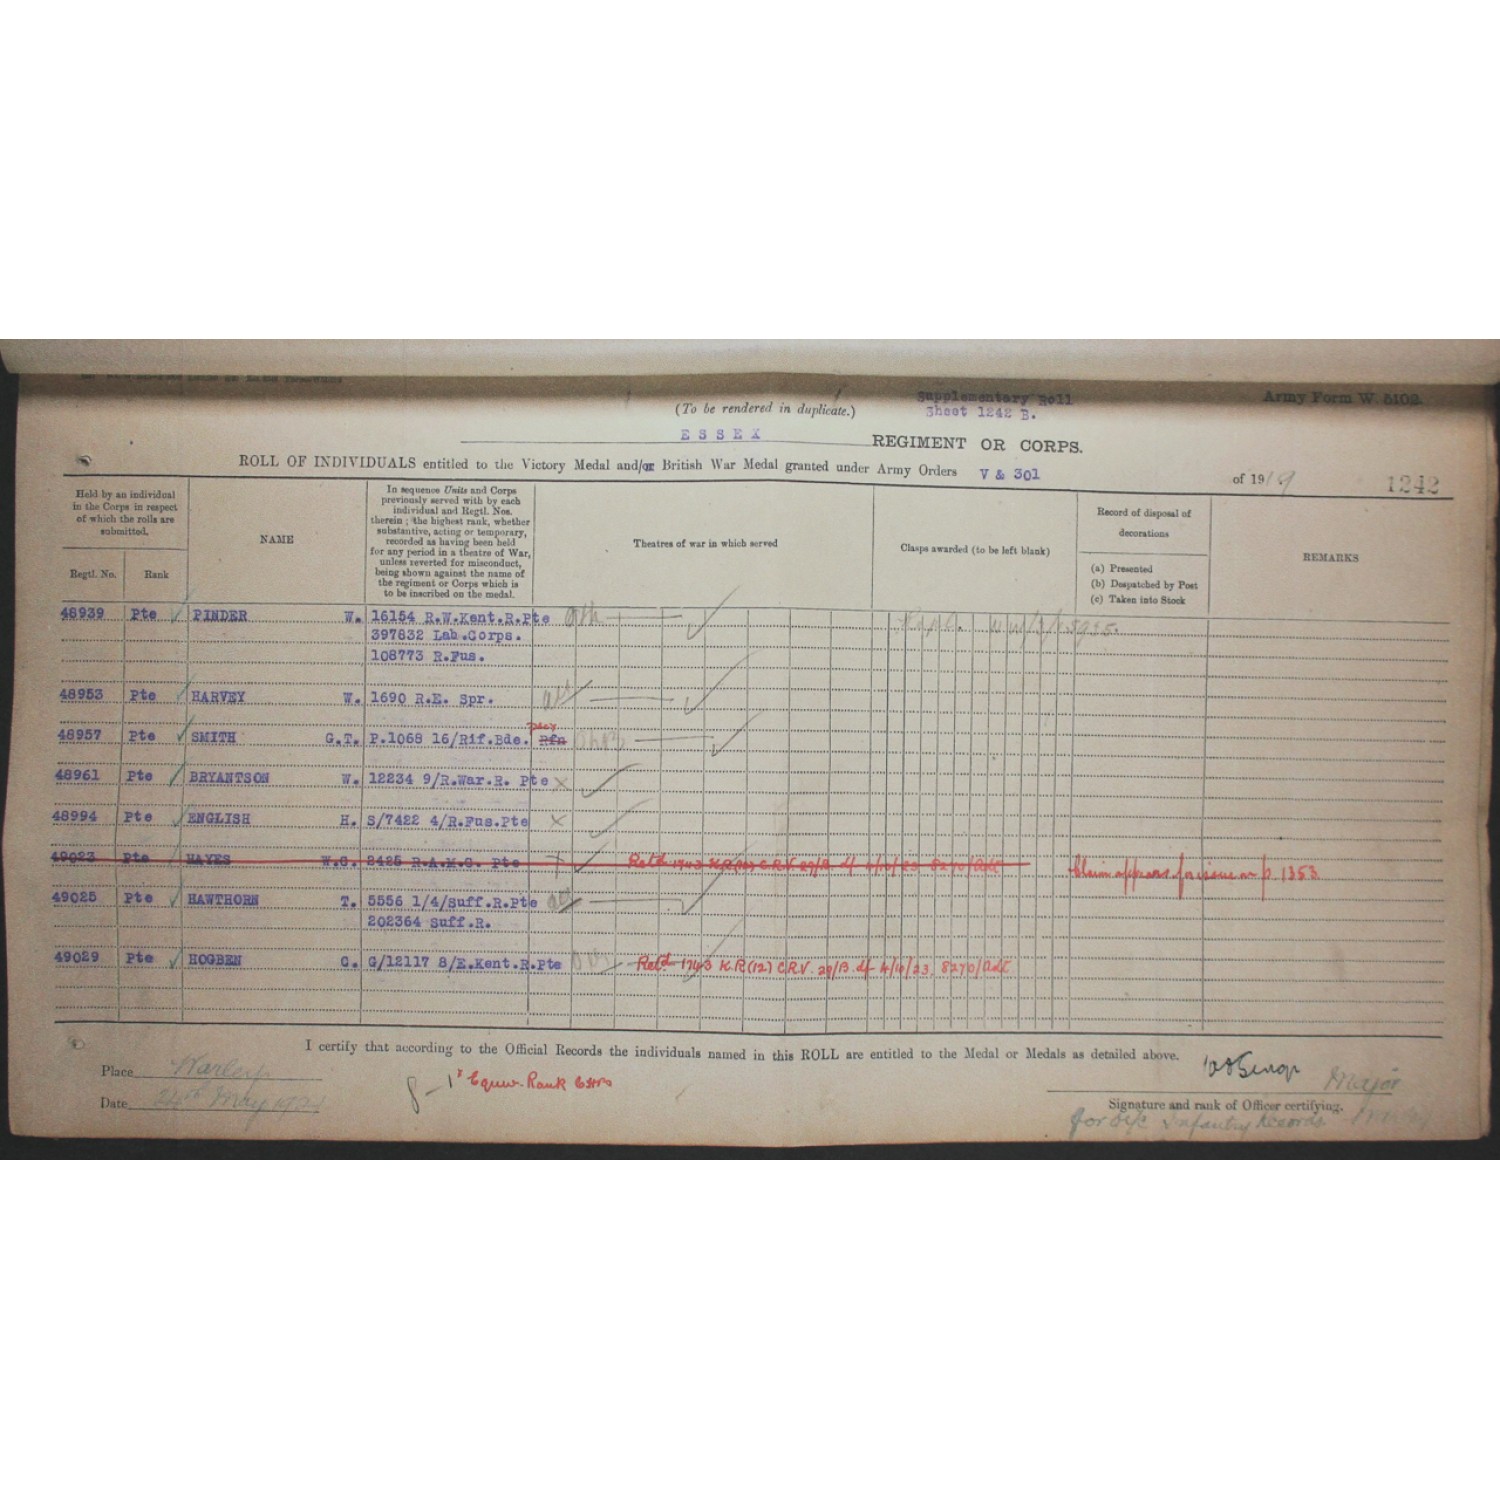 Supplementary Roll
(To be rendered in duplicate.) Sheet 1242 B. Army Form W. 5102.
ESSEX REGIMENT OR CORPS.
ROLL OF INDIVIDUALS entitled to the Victory Medal and/or British War Medal granted under Army Orders V & 301 of 1919 1242
Held by an individual in the Corps in respect of which the rolls are submitted.
Regtl. No. Rank
NAME
In sequence Units and Corps previously served with by each individual and Regtl. Nos. therein; the highest rank, whether substantive, acting or temporary, recorded as having been held for any period in a theatre of War, unless reverted for misconduct, being shown against the name of the regiment or Corps which is to be inscribed on the medal.
Theatres of war in which served
Clasps awarded (to be left blank)
Record of disposal of decorations
(a) Presented
(b) Despatched by Post
(c) Taken into Stock
REMARKS
48939 Pte PINDER W. 16154 R.W.Kent.R.Pte
397832 Lab.Corps.
108773 R.Fus.
48953 Pte HARVEY W. 1690 R.E. Spr.
48957 Pte SMITH G.T. P.1068 16/Rif.Bde. Rfn
48961 Pte BRYANTSON W. 12234 9/R.War.R. Pte X
48994 Pte ENGLISH H. S/7422 4/R.Fus.Pte X
49023 Pte HAYES W.G. 2425 R.A.M.C. Pte Retd 1743 K.R(12) C.R.V. 29/B. df 4/10/23 8270/Adt Claim appears for issue on p. 1353
49025 Pte HAWTHORN T. 5556 1/4/Suff.R.Pte
202364 Suff.R.
49029 Pte HOGBEN G. G/12117 8/E.Kent.R.Pte Retd 1743 K.R(12) C.R.V. 29/B. df 4/10/23. 8270/Adt
I certify that according to the Official Records the individuals named in this ROLL are entitled to the Medal or Medals as detailed above.
Place Warley
Date 24th May 1921
8 - 1 x Equiv. Rank
Major
Signature and rank of Officer certifying.
for Infantry Records